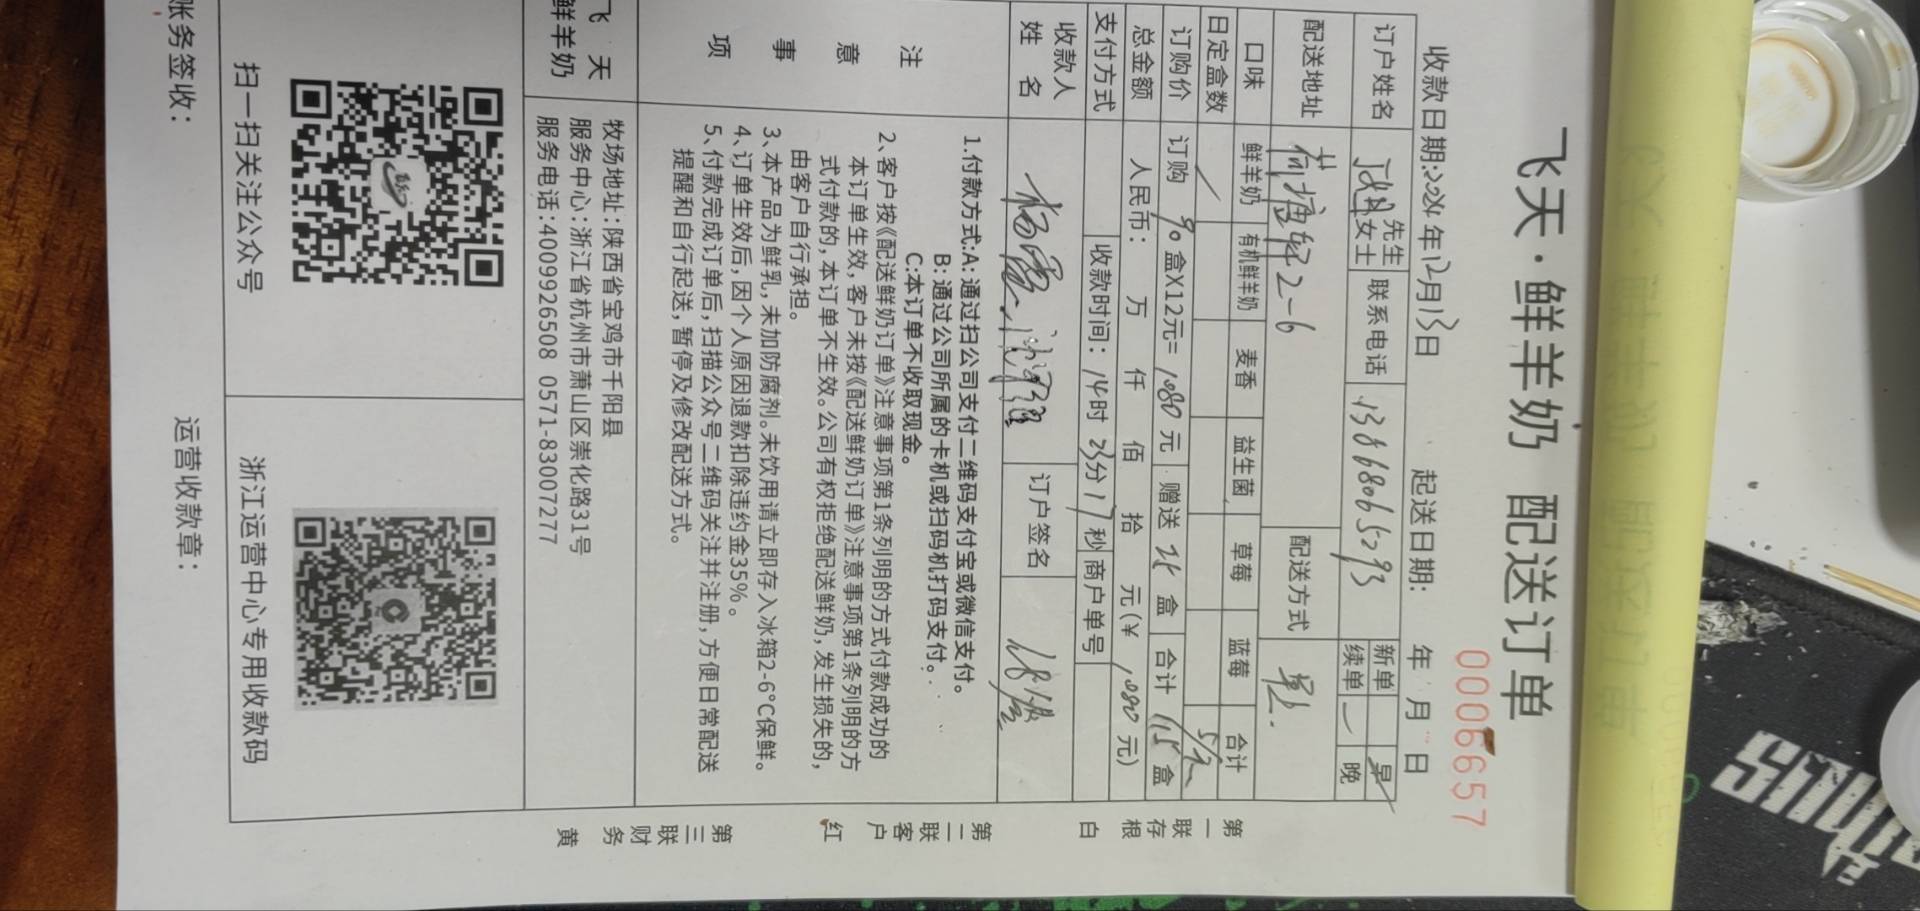 飞天·鲜羊奶 配送订单
0006657
收款日期:2024年12月13日 起送日期: 年 月 日
订户姓名 先生 女士 联系电话 13868065293 新单 续单 早 晚
配送地址 荷塘轩2-6 配送方式
口味 鲜羊奶 有机鲜羊奶 麦香 益生菌 草莓 蓝莓 合计
日定盒数
订购价 订购 90 盒X12元= 1080 元 赠送 25 盒 合计 115 盒
总金额 人民币: 万 仟 佰 拾 元(¥ 1080 元)
支付方式 收款时间: 14时 23分 17秒 商户单号
收款人姓名 订户签名
注意事项
1.付款方式:A: 通过扫公司支付二维码支付宝或微信支付。
B: 通过公司所属的卡机或扫码机打码支付。
C:本订单不收取现金。
2、客户按《配送鲜奶订单》注意事项第1条列明的方式付款成功的
本订单生效, 客户未按《配送鲜奶订单》注意事项第1条列明的方
式付款的, 本订单不生效。公司有权拒绝配送鲜奶, 发生损失的,
由客户自行承担。
3、本产品为鲜乳, 未加防腐剂。未饮用请立即存入冰箱2-6°C保鲜。
4、订单生效后, 因个人原因退款扣除违约金35%。
5、付款完成订单后, 扫描公众号二维码关注并注册, 方便日常配送
提醒和自行起送, 暂停及修改配送方式。
飞天鲜羊奶
牧场地址:陕西省宝鸡市千阳县
服务中心:浙江省杭州市萧山区崇化路31号
服务电话:4009926508 0571-83007277
扫一扫关注公众号
浙江运营中心专用收款码
账务签收:
运营收款章:
第一联存根 白
第二联客户 红
第三联财务 黄